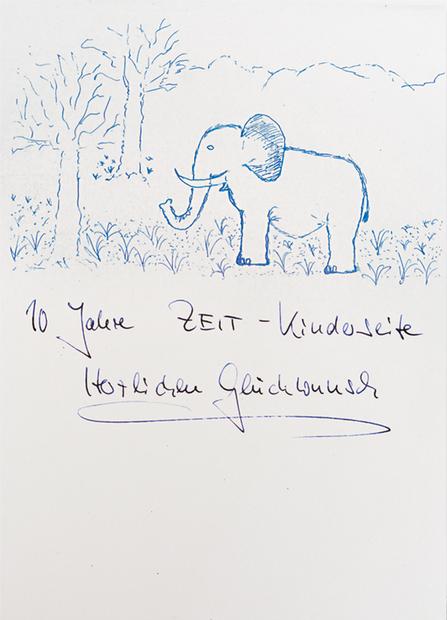 10 Jahre ZEIT-Kinderseite
Herzlichen Glückwunsch